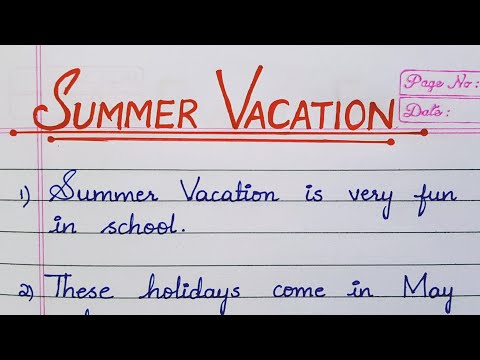 SUMMER VACATION
Page No:
Date:
1) Summer Vacation is very fun
in school.
2) These holidays come in May